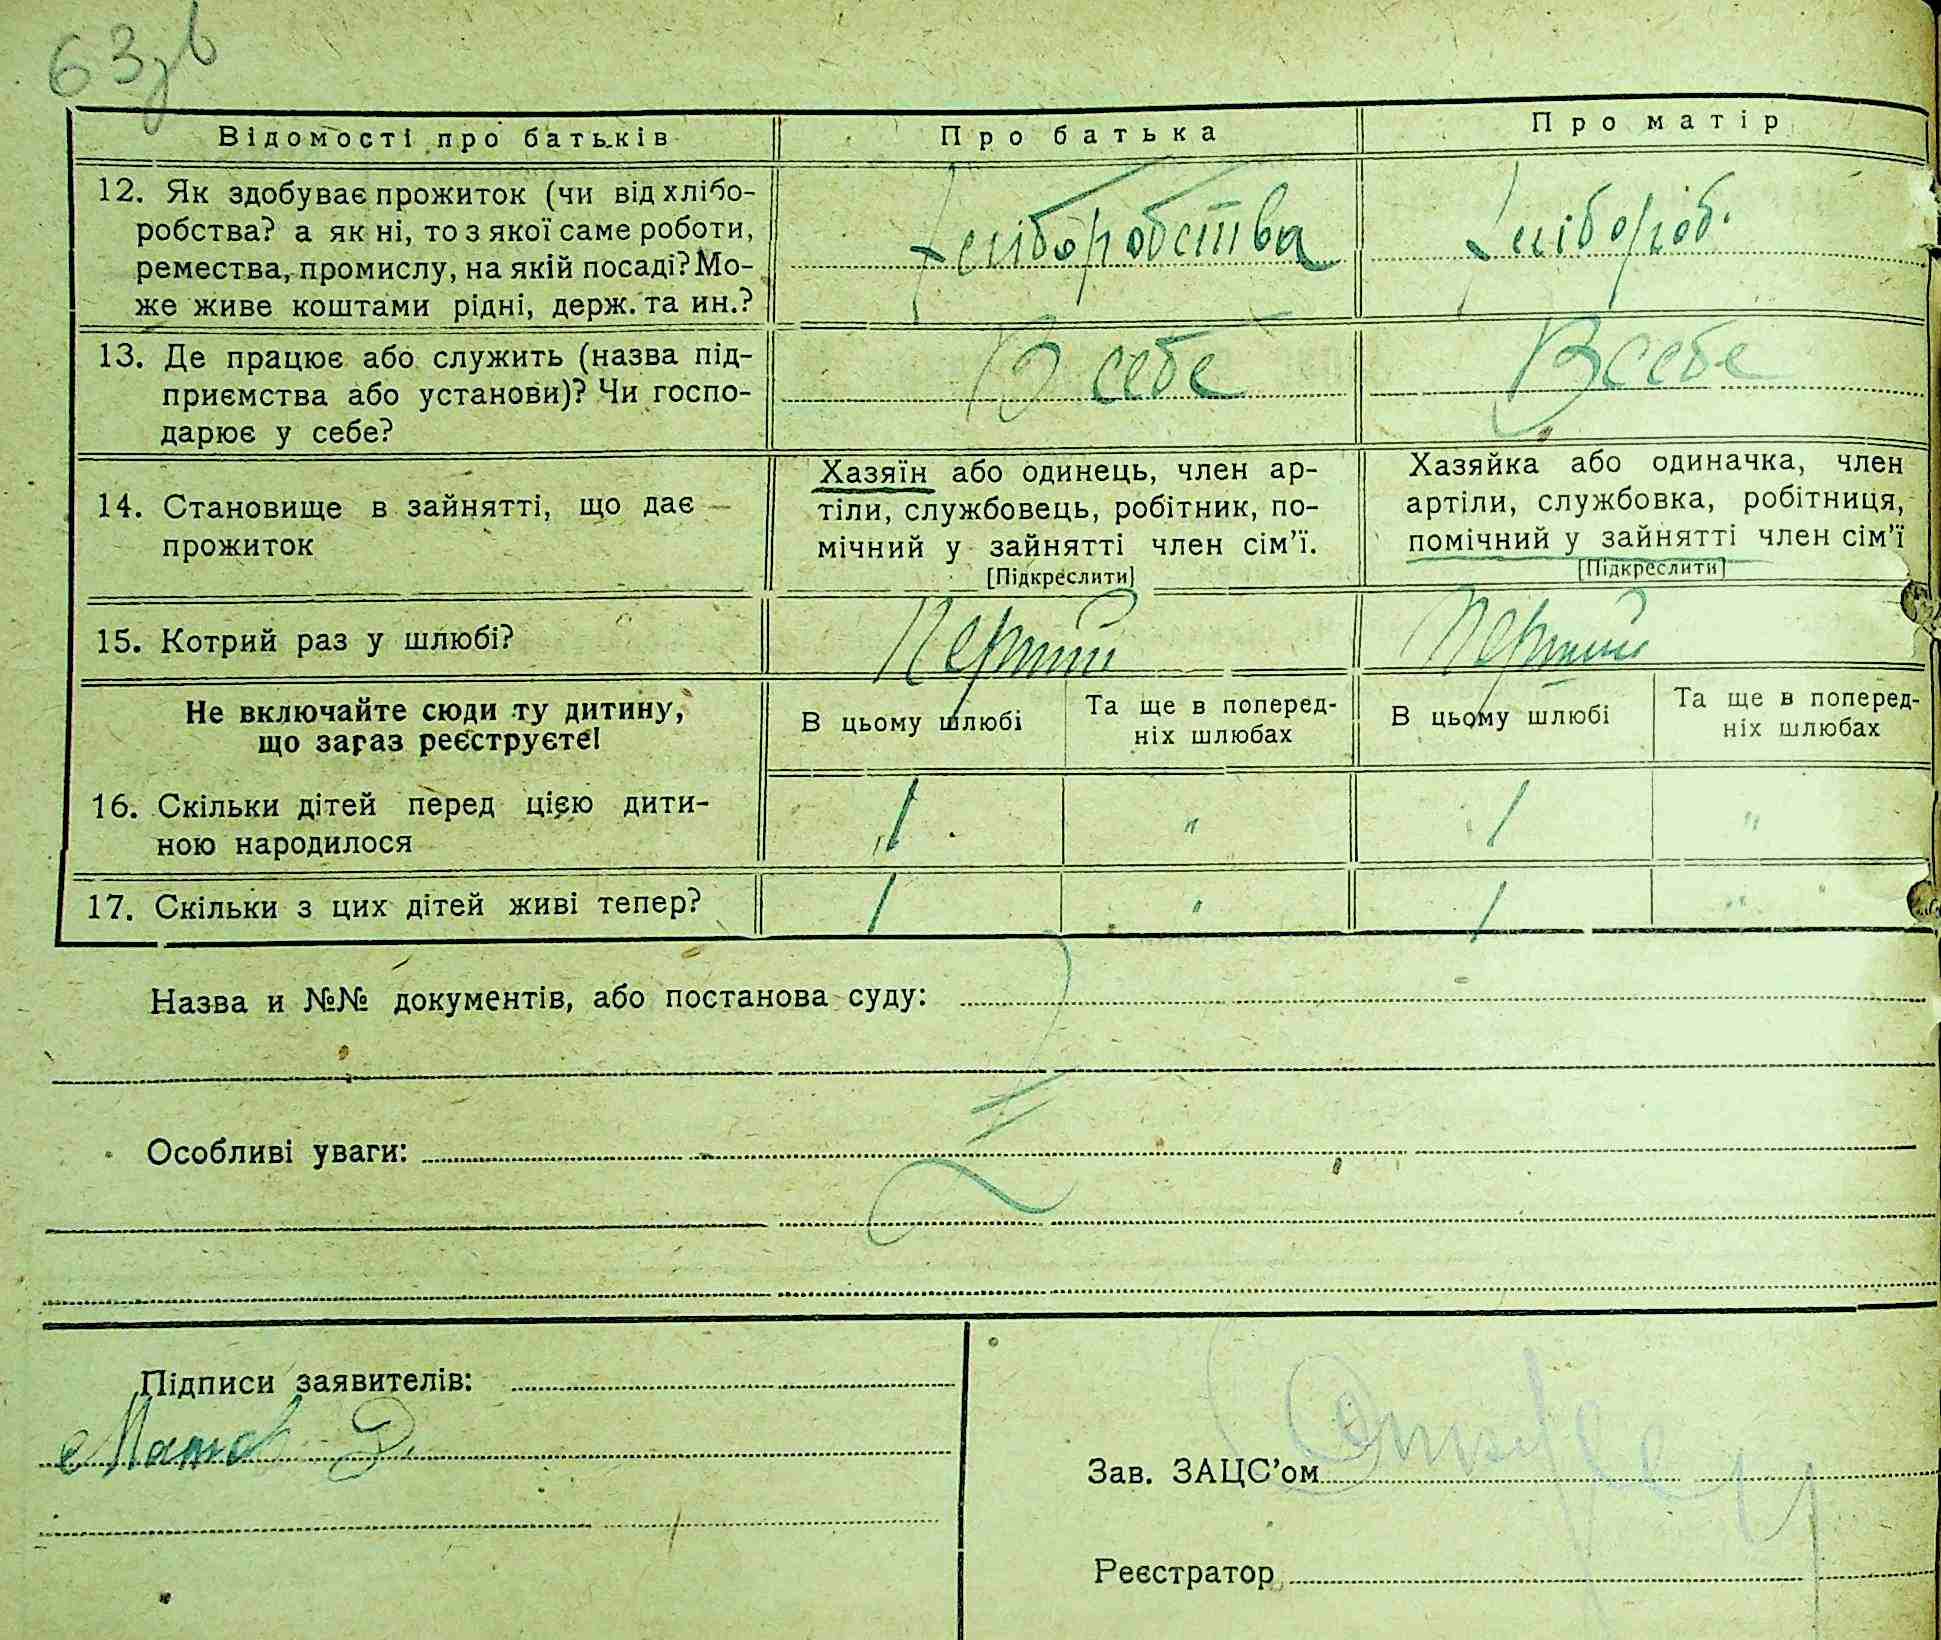 63зв
Відомості про батьків
Про батька
Про матір
12. Як здобуває прожиток (чи від хлібо-
робства? а як ні, то з якої саме роботи,
ремества, промислу, на якій посаді? Мо-
же живе коштами рідні, держ. та ин.?
Хліборобства
Хлібороб.
13. Де працює або служить (назва під-
приємства або установи)? Чи госпо-
дарює у себе?
В себе
В себе
14. Становище в зайнятті, що дає
прожиток
Хазяїн або одинець, член ар-
тіли, службовець, робітник, по-
мічний у зайнятті член сім'ї.
[Підкреслити]
Хазяйка або одиначка, член
артіли, службовка, робітниця,
помічний у зайнятті член сім'ї
[Підкреслити]
15. Котрий раз у шлюбі?
Перший
Перший
Не включайте сюди ту дитину,
що зараз реєструєте!
В цьому шлюбі
Та ще в поперед-
ніх шлюбах
В цьому шлюбі
Та ще в поперед-
ніх шлюбах
16. Скільки дітей перед цією дити-
ною народилося
1 " 1 "
17. Скільки з цих дітей живі тепер?
1 " 1 "
Назва и №№ документів, або постанова суду:
Особливі уваги:
Підписи заявителів:
Зав. ЗАЦС'ом
Реєстратор